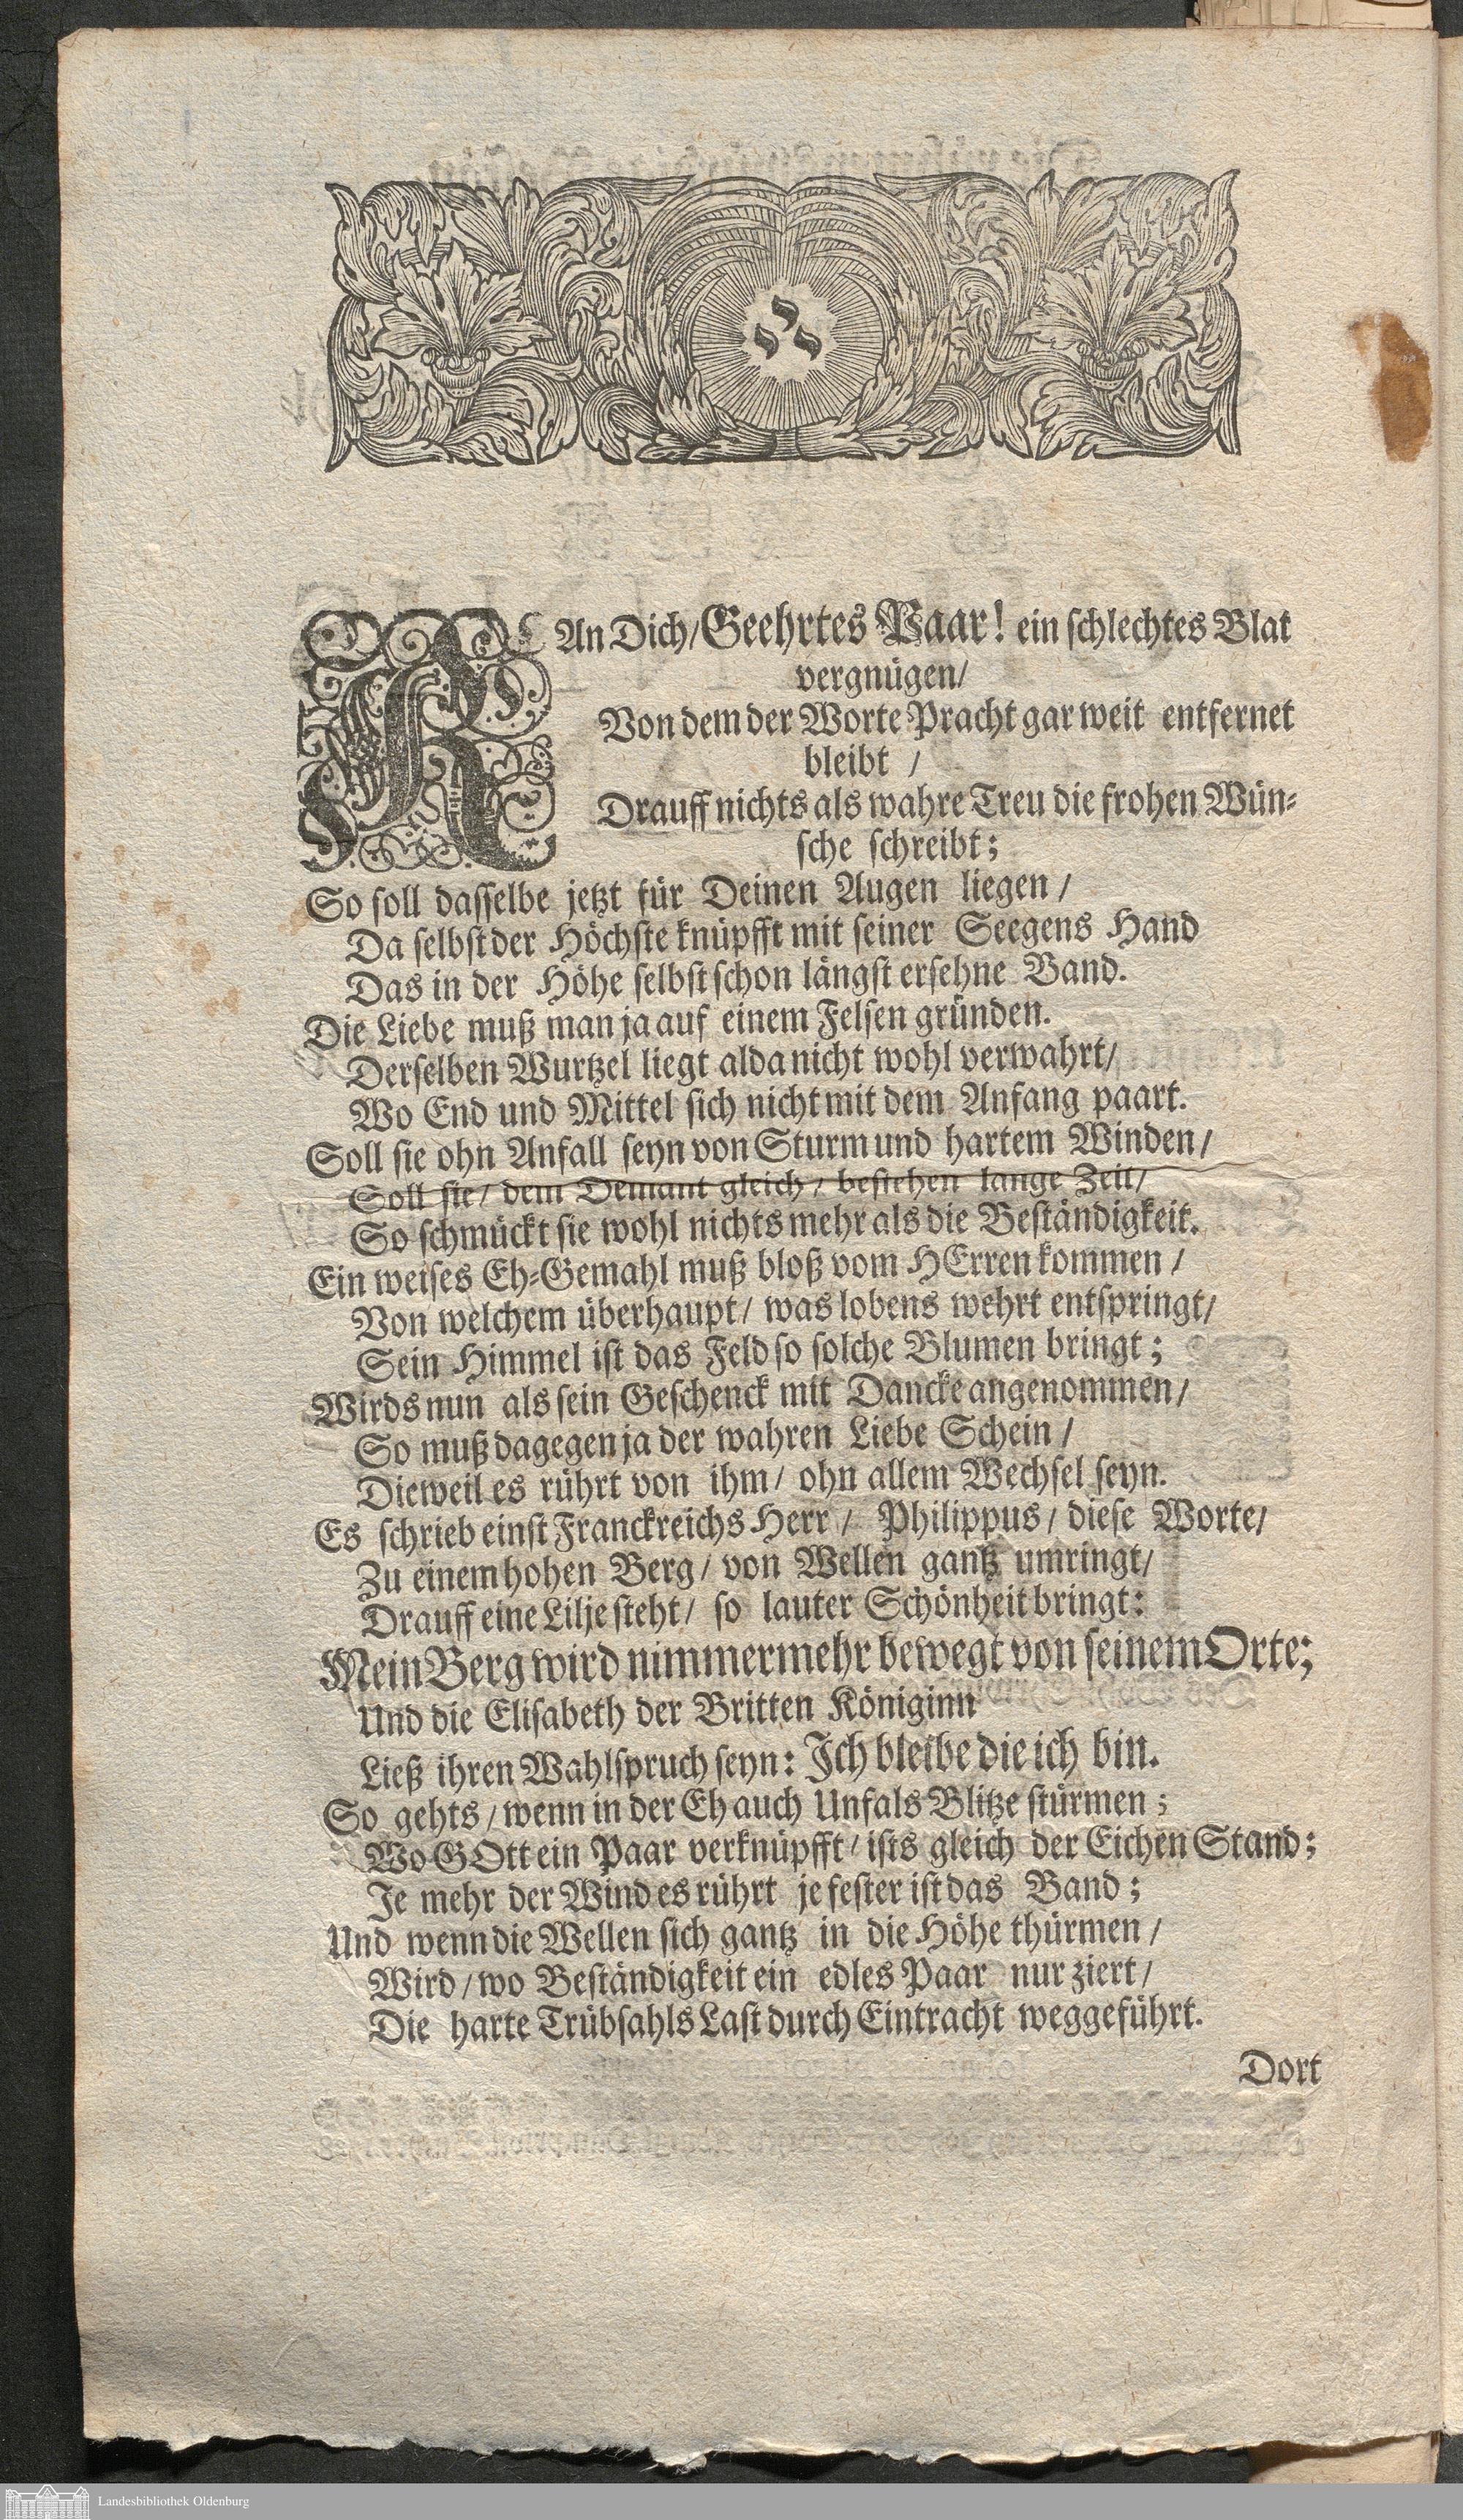 KAn Dich/ Geehrtes Paar! ein schlechtes Blat
vergnügen/
Von dem der Worte Pracht gar weit entfernet
bleibt /
Drauff nichts als wahre Treu die frohen Wün-
sche schreibt;
So soll dasselbe jetzt für Deinen Augen liegen /
Da selbst der Höchste knüpfft mit seiner Seegens Hand
Das in der Höhe selbst schon längst ersehne Band.
Die Liebe muß man ja auf einem Felsen gründen.
Derselben Wurtzel liegt alda nicht wohl verwahrt/
Wo End und Mittel sich nicht mit dem Anfang paart.
Soll sie ohn Anfall seyn von Sturm und hartem Winden /
Soll sie / dem Demant gleich / bestehen lange Zeit /
So schmückt sie wohl nichts mehr als die Beständigkeit.
Ein weises Eh-Gemahl muß bloß vom HErren kommen /
Von welchem überhaupt / was lobens wehrt entspringt /
Sein Himmel ist das Feld so solche Blumen bringt ;
Wirds nun als sein Geschenck mit Dancke angenommen /
So muß dagegen ja der wahren Liebe Schein /
Dieweil es rührt von ihm / ohn allem Wechsel seyn.
Es schrieb einst Franckreichs Herr / Philippus / diese Worte /
Zu einem hohen Berg / von Wellen gantz umringt /
Drauff eine Lilje steht / so lauter Schönheit bringt:
Mein Berg wird nimmermehr bewegt von seinem Orte;
Und die Elisabeth der Britten Königinn
Ließ ihren Wahlspruch seyn: Ich bleibe die ich bin.
So gehts / wenn in der Eh auch Unfals Blitze stürmen ;
Wo GOtt ein Paar verknüpfft / ists gleich der Eichen Stand;
Je mehr der Wind es rührt je fester ist das Band ;
Und wenn die Wellen sich gantz in die Höhe thürmen /
Wird / wo Beständigkeit ein edles Paar nur ziert /
Die harte Trübsahls Last durch Eintracht weggeführt.
Dort
Landesbibliothek Oldenburg